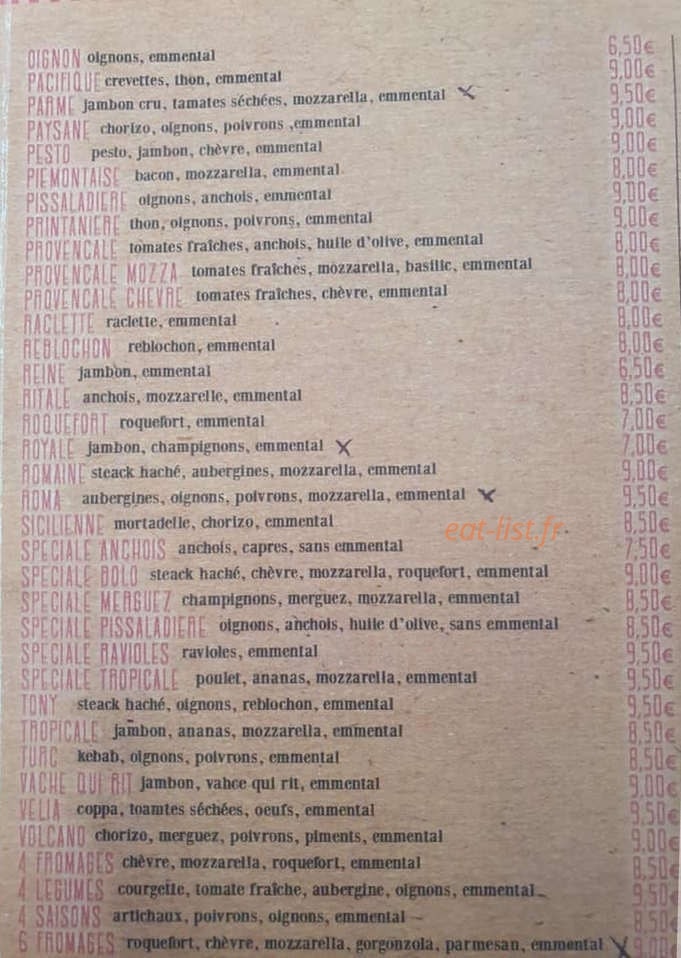 OIGNON oignons, emmental 6,50€
PACIFIQUE crevettes, thon, emmental 9,00€
PARME jambon cru, tamates séchées, mozzarella, emmental 9,50€
PAYSANE chorizo, oignons, poivrons ,emmental 9,00€
PESTO pesto, jambon, chèvre, emmental 9,00€
PIEMONTAISE bacon, mozzarella, emmental 8,00€
PISSALADIERE oignons, anchois, emmental 9,00€
PRINTANIERE thon, oignons, poivrons, emmental 9,00€
PROVENCALE tomates fraîches, anchois, huile d'olive, emmental 8,00€
PROVENCALE MOZZA tomates fraîches, mozzarella, basilic, emmental 8,00€
PROVENCALE CHEVRE tomates fraîches, chèvre, emmental 8,00€
RACLETTE raclette, emmental 8,00€
REBLOCHON reblochon, emmental 8,00€
REINE jambon, emmental 6,50€
RITALE anchois, mozzarelle, emmental 8,50€
ROQUEFORT roquefort, emmental 7,00€
ROYALE jambon, champignons, emmental 7,00€
ROMAINE steack haché, aubergines, mozzarella, emmental 9,00€
ROMA aubergines, oignons, poivrons, mozzarella, emmental 9,50€
SICILIENNE mortadelle, chorizo, emmental 8,50€
eat-list.fr
SPECIALE ANCHOIS anchois, capres, sans emmental 7,50€
SPECIALE BOLO steack haché, chèvre, mozzarella, roquefort, emmental 9,00€
SPECIALE MERGUEZ champignons, merguez, mozzarella, emmental 8,50€
SPECIALE PISSALADIERE oignons, anchois, huile d'olive, sans emmental 8,50€
SPECIALE RAVIOLES ravioles, emmental 9,50€
SPECIALE TROPICALE poulet, ananas, mozzarella, emmental 9,50€
TONY steack haché, oignons, reblochon, emmental 9,50€
TROPICALE jambon, ananas, mozzarella, emmental 8,50€
TURC kebab, oignons, poivrons, emmental 8,50€
VACHE QUI RIT jambon, vahce qui rit, emmental 9,00€
VELIA coppa, toamtes séchées, oeufs, emmental 9,50€
VOLCANO chorizo, merguez, poivrons, piments, emmental 9,00€
4 FROMAGES chèvre, mozzarella, roquefort, emmental 8,50€
4 LEGUMES courgette, tomate fraîche, aubergine, oignons, emmental 9,50€
4 SAISONS artichaux, poivrons, oignons, emmental 8,50€
6 FROMAGES roquefort, chèvre, mozzarella, gorgonzola, parmesan, emmental 9,00€